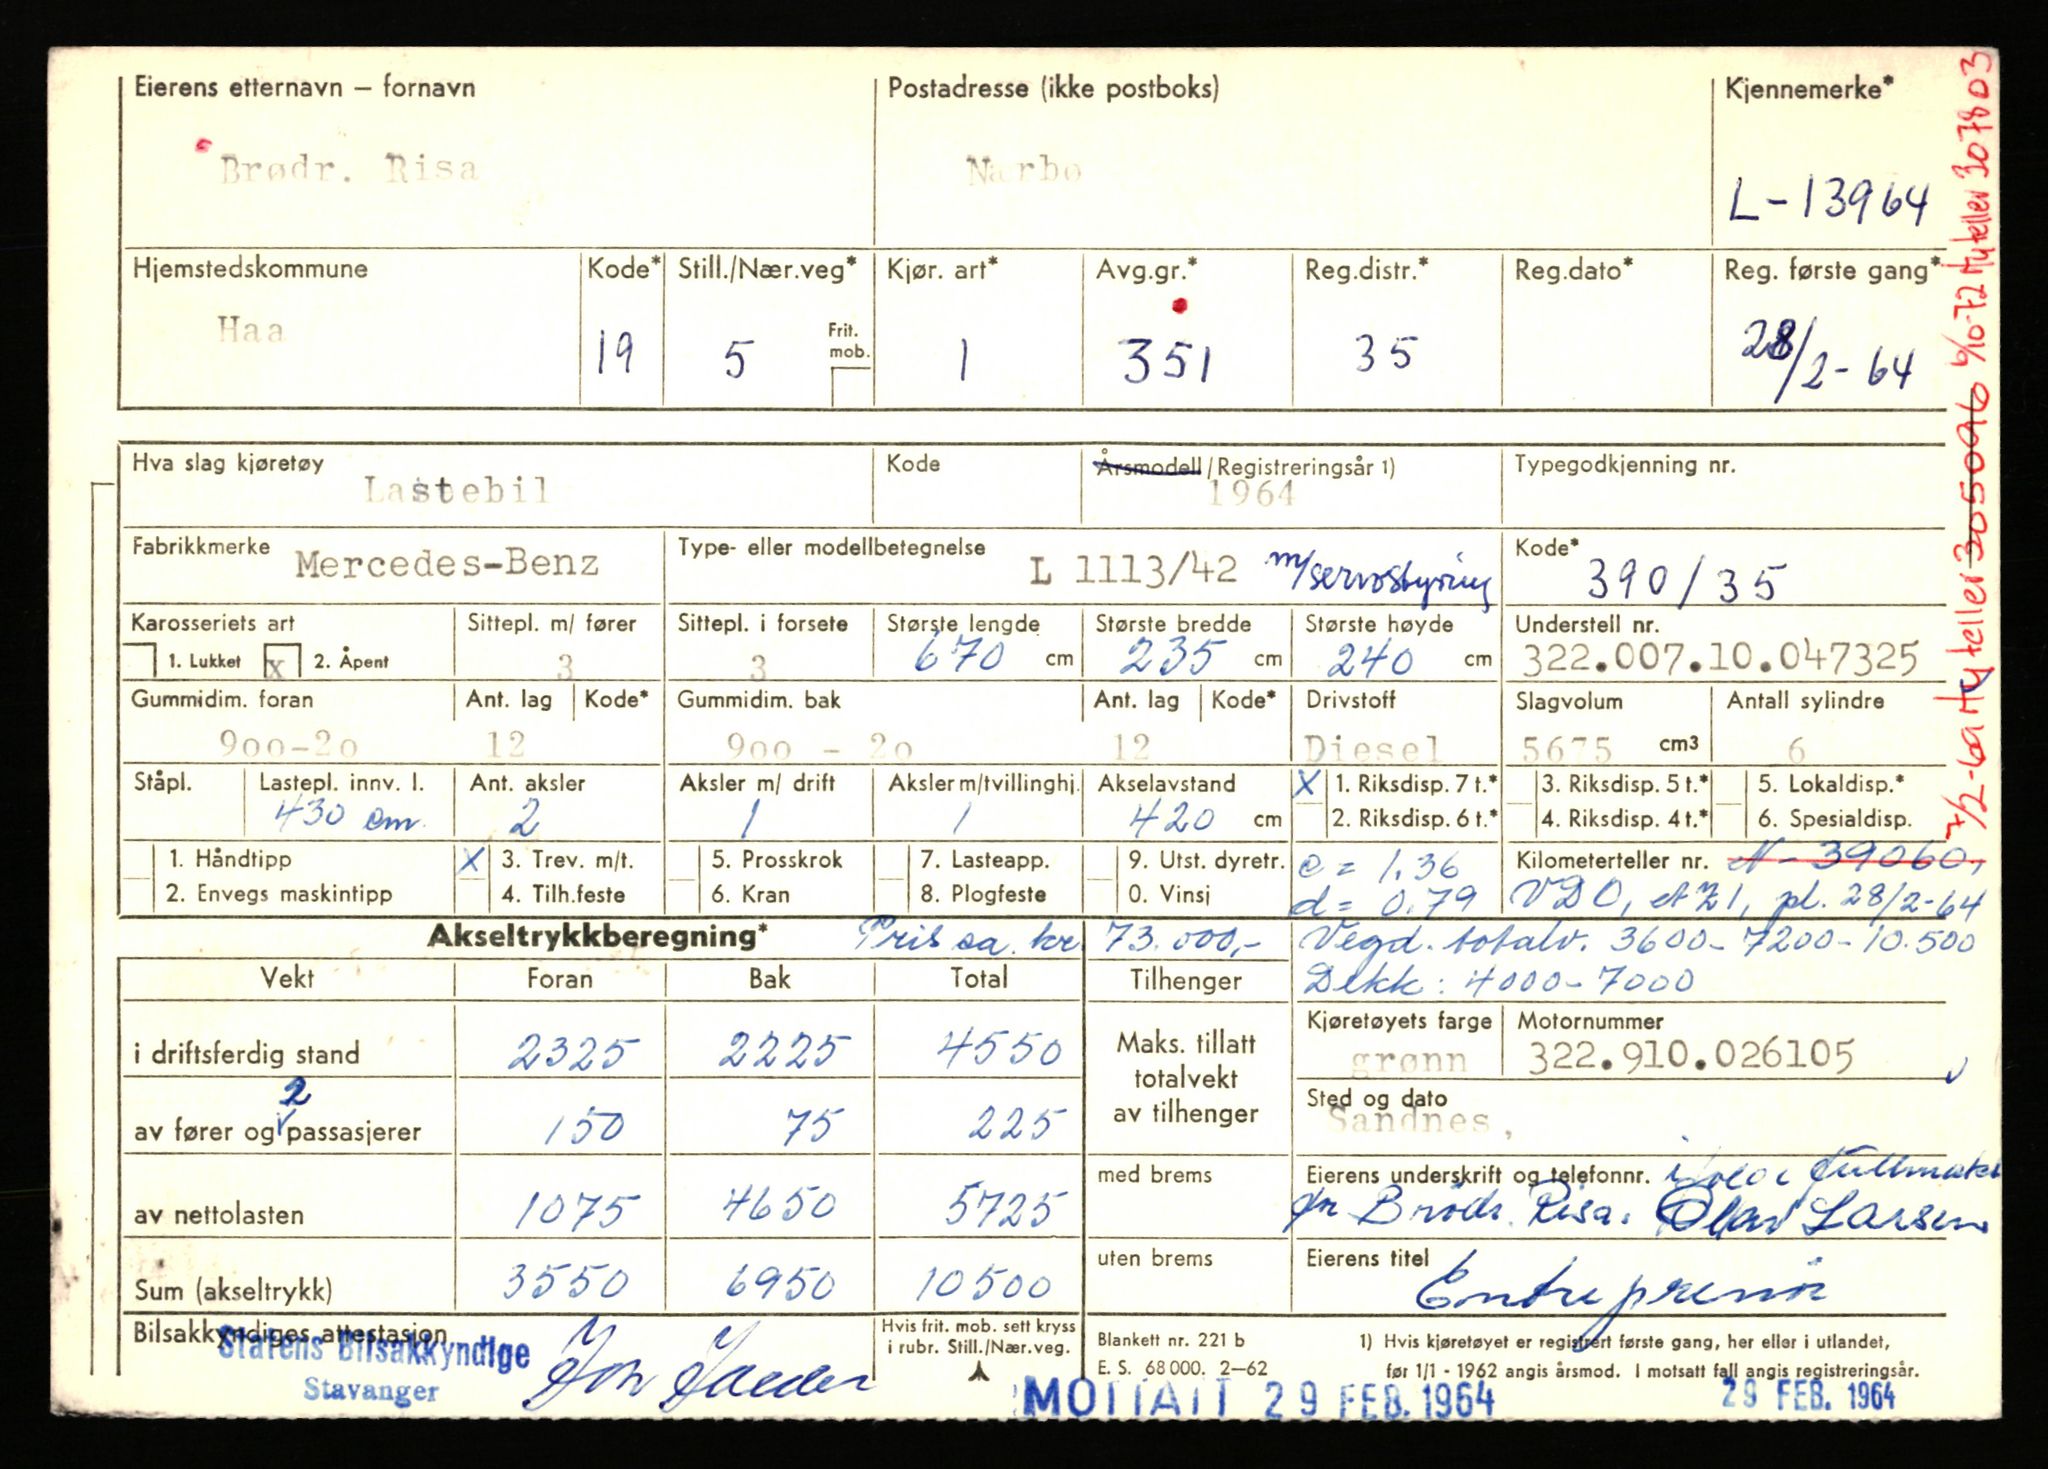 Eierens etternavn – fornavn Postadresse (ikke postboks) Kjennemerke*
Brødr. Risa Nærbø L-13964
Hjemstedskommune Kode* Still./Nær.veg* Kjør. art* Avg.gr.* Reg.distr.* Reg.dato* Reg. første gang*
Haa 19 5 Frit. mob. 1 351 35 28/2-64
Hva slag kjøretøy Kode Årsmodell/Registreringsår 1) Typegodkjenning nr.
Lastebil 1964
Fabrikkmerke Mercedes-Benz Type- eller modellbetegnelse L 1113/42 m/servostyring Kode* 390/35
Karosseriets art Sittepl. m/ fører Sittepl. i forsete Største lengde Største bredde Største høyde Understell nr.
1. Lukket x 2. Åpent 3 3 670 cm 235 cm 240 cm 322.007.10.047325
Gummidim. foran Ant. lag Kode* Gummidim. bak Ant. lag Kode* Drivstoff Slagvolum Antall sylindre
9oo-2o 12 9oo - 2o 12 Diesel 5675 cm3 6
Ståpl. Lastepl. innv. l. Ant. aksler Aksler m/ drift Aksler m/tvillinghj. Akselavstand X 1. Riksdisp. 7 t.* 3. Riksdisp. 5 t.* 5. Lokaldisp.*
430 cm. 2 1 1 420 cm 2. Riksdisp. 6 t.* 4. Riksdisp. 4 t.* 6. Spesialdisp.
1. Håndtipp X 3. Trev. m/t. 5. Prosskrok 7. Lasteapp. 9. Utst. dyretr. c = 1.36 Kilometerteller nr. N-39060,
2. Envegs maskintipp 4. Tilh.feste 6. Kran 8. Plogfeste 0. Vinsj d = 0.79 VDO, et 21, pl. 28/2-64
Akseltrykkberegning* Pris ca. kr 73.000,- Vegd. totalv. 3600-7200-10.500
Vekt Foran Bak Total Tilhenger Dekk: 4000-7000
i driftsferdig stand 2325 2225 4550 Maks. tillatt totalvekt av tilhenger
Kjøretøyets farge Motornummer
grønn 322.910.026105
av fører og 2 passasjerer 150 75 225 Sted og dato
Sandnes,
av nettolasten 1075 4650 5725 med brems Eierens underskrift og telefonnr. fullmakt
Brødr. Risa. Olav Larsen
Sum (akseltrykk) 3550 6950 10500 uten brems Eierens titel
Entreprenør
Bilsakkyndiges attestasjon Hvis frit. mob. sett kryss i rubr. Still./Nær.veg.
Statens Bilsakkyndige
Stavanger
Blankett nr. 221 b
E. S. 68 000. 2–62
1) Hvis kjøretøyet er registrert første gang, her eller i utlandet,
før 1/1 - 1962 angis årsmod. I motsatt fall angis registreringsår.
MOTTATT 29 FEB. 1964 29 FEB. 1964
7/2-69 Ny teller 305096 6/10-72 Ny teller 307803